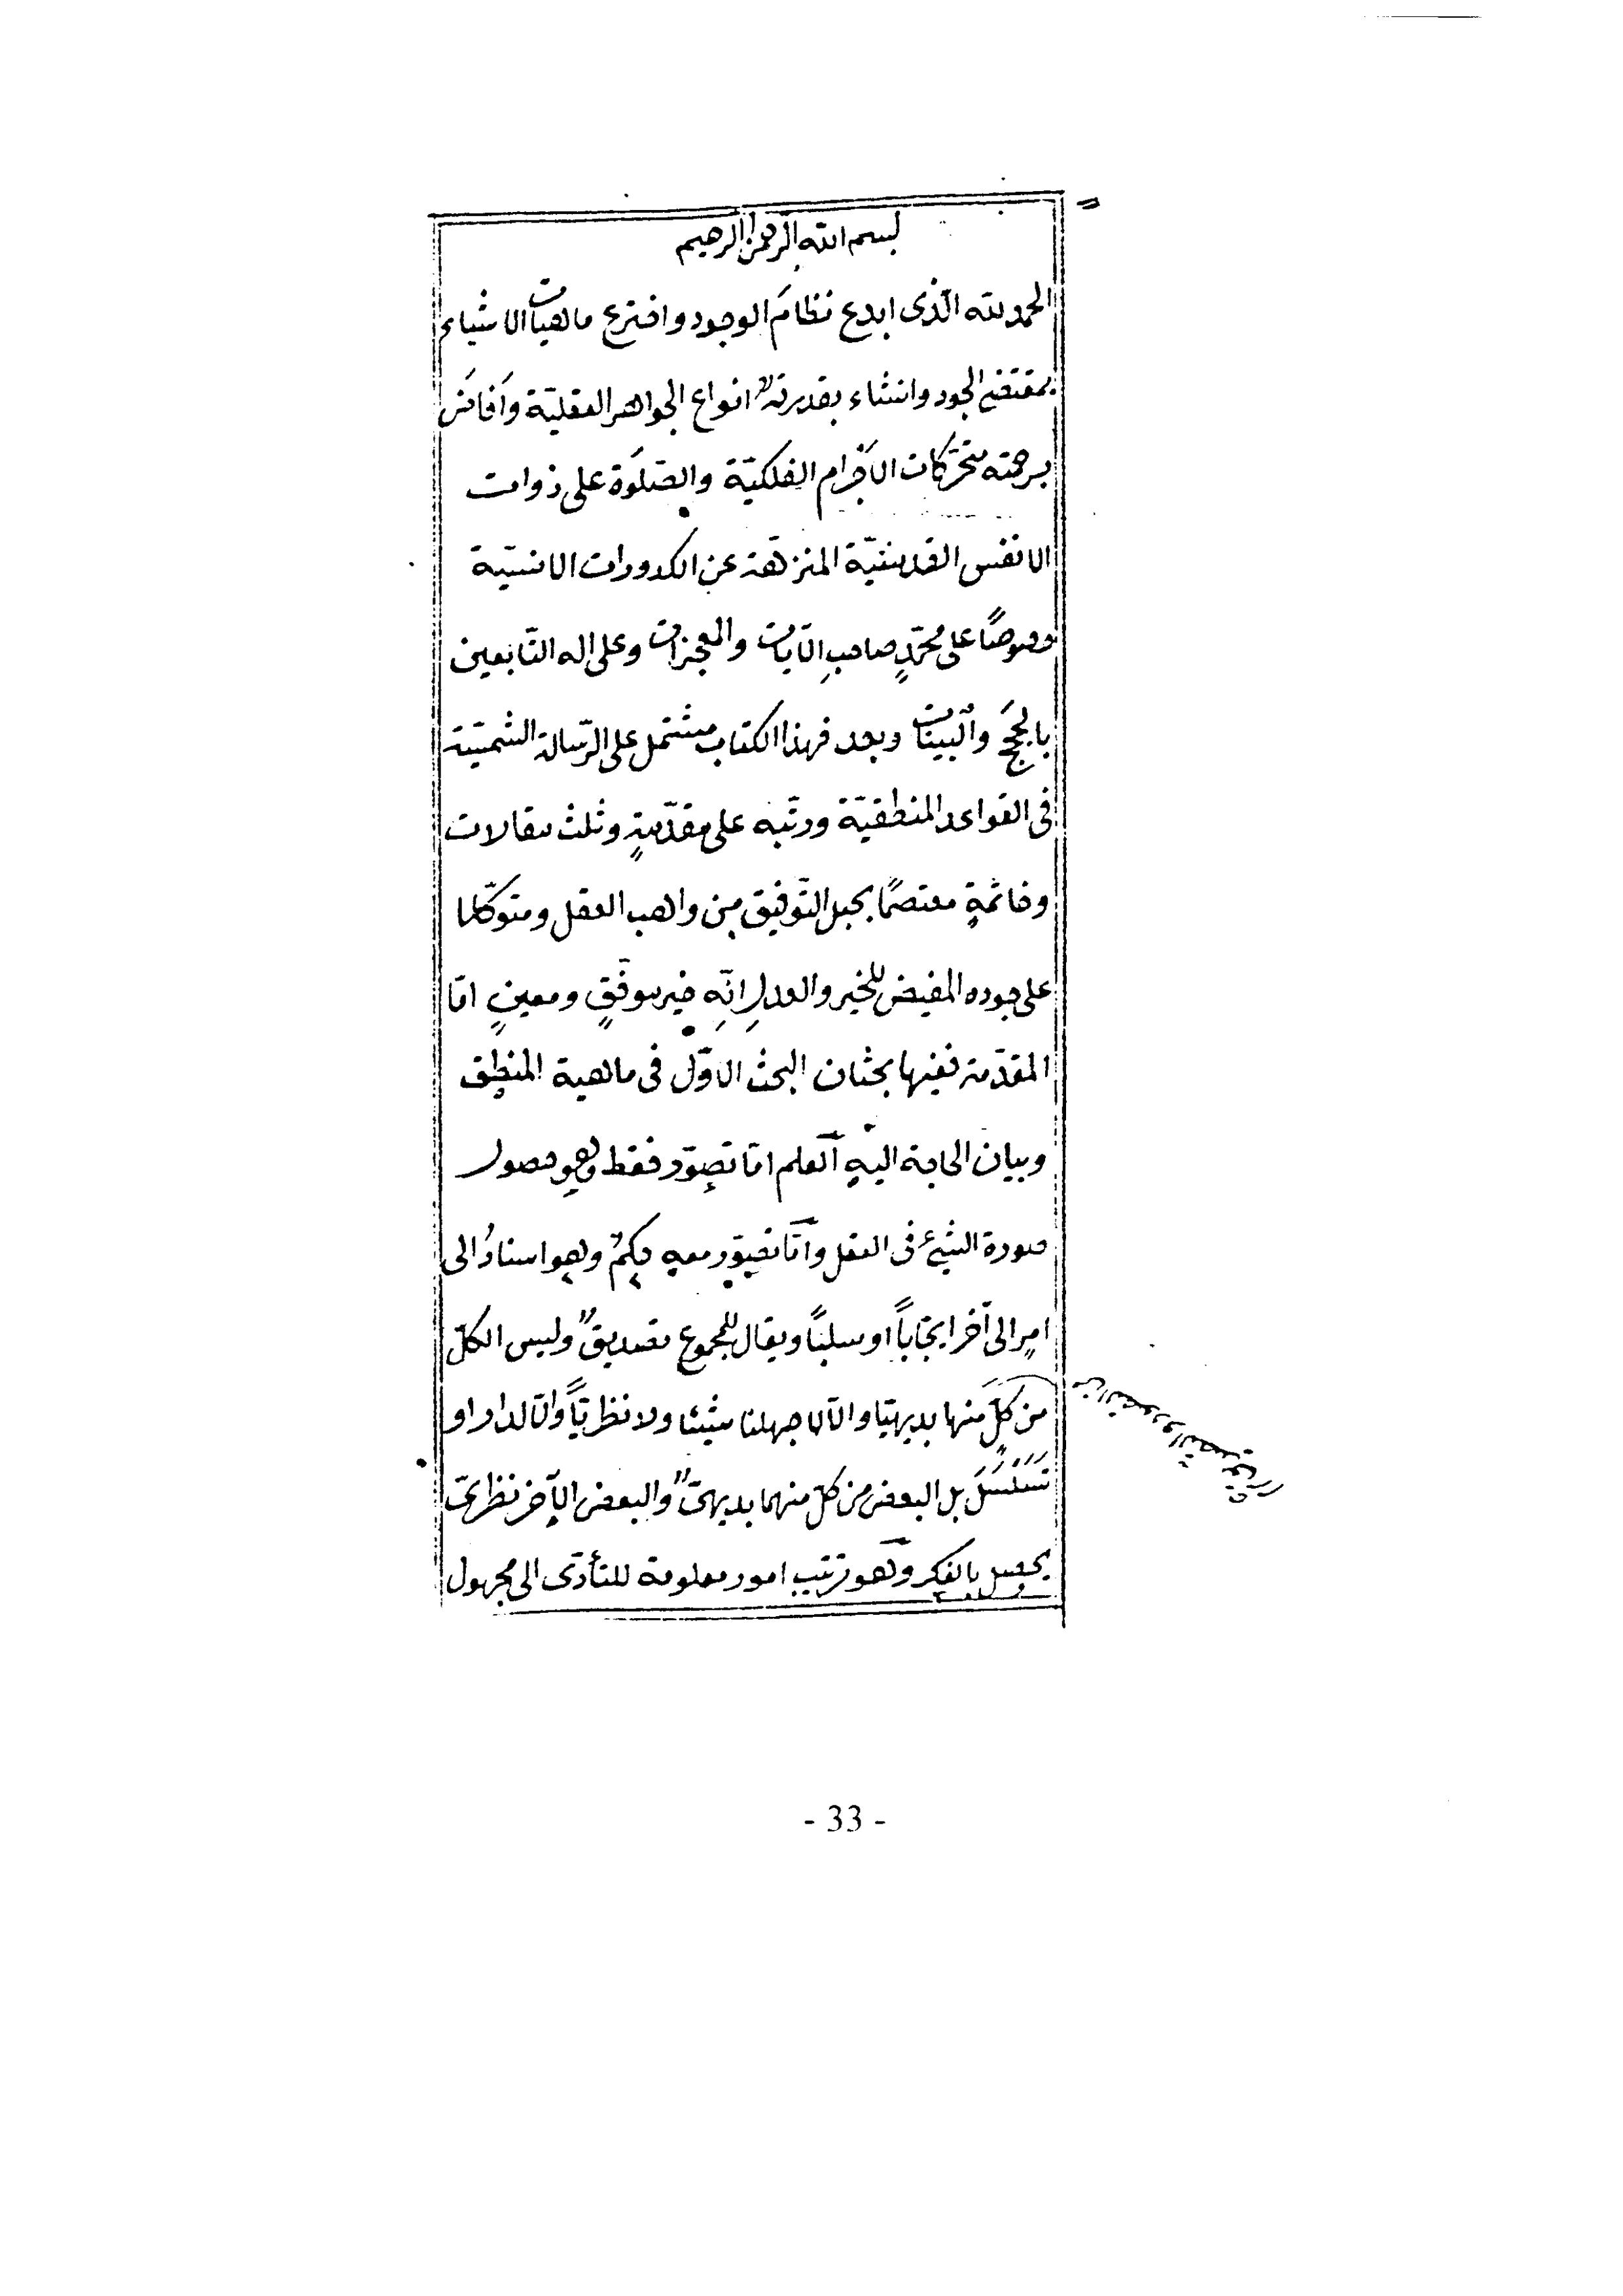 بسم الله الرحمن الرحيم
الحمد لله الّذى ابدع نظامَ الوجود واخترع ماهيات الاشياء
بمقتضى الجود وانشاء بقدرته انواع الجواهر العقليّة وَافاضَ
برحمته متحرّكات الاَجرام الفلكيّة والصّلَوة على ذوات
الانفس القدسيّة المنزهة عن الكدورات الانسيّة
خصوصًا على محمّدٍ صاحبِ الآيات والمعجزات وعلى اله التّابعين
بالحجَج والبينات وبعد فهذا الكتاب مشتمل على الرّسالة الشمسيّة
فى القواعد المنطقيّة ورتّبته على مقدّمةٍ وثلث مقالات
وخاتمةٍ معتصمًا بحبل التّوفيق من واهب العقل ومتوكّلا
على جوده المفيض للخير والعدلِ انّهِ خير موفّقٍ ومعينٍ امّا
المقدّمة ففيها بحثان البحث الاوّل فى ماهية المنطق
وبيان الحاجة اليهِ العلم امّا تصوّر فقط وهو حصول
صورة الشىء فى العقل وامّا تصوّر معه حكمٌ وهو اسنادُ الى
امرٍ الى آخر ايجاباً او سلباً ويقال للمجموع تصديقٌ وليس الكلّ
من كلٍّ منها بديهيّا والّا لا جهلنا شيئا ولا نظريّاً والّا لدار او
تَسَلْسَلَ بل البعض من كلّ منهما بديهىٌّ والبعض الآخر نظرىّ
يحصل بالفكر وهو ترتيب امور معلومة للتأدّى الى مجهول
- 33 -